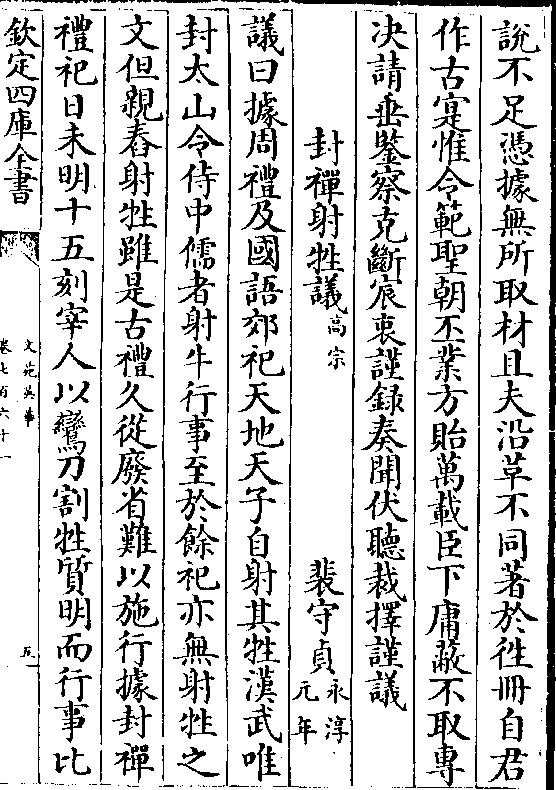 說不足憑據無所取材且夫沿革不同著於徃冊自君
作古寔惟令範聖朝丕業方貽萬載臣下庸蔽不取專
决請垂鑒察克斷宸衷謹録奏聞伏聽裁擇謹議
封禪射牲議高宗 裴守貞永淳元年
議曰據周禮及國語郊祀天地天子自射其牲漢武唯
封太山令侍中儒者射牛行事至於餘祀亦無射牲之
文但親舂射牲雖是古禮久從廢省難以施行據封禪
禮祀日未明十五刻宰人以鸞刀割牲質明而行事比
欽定四庫全書
文苑英華
卷七百六十一
五